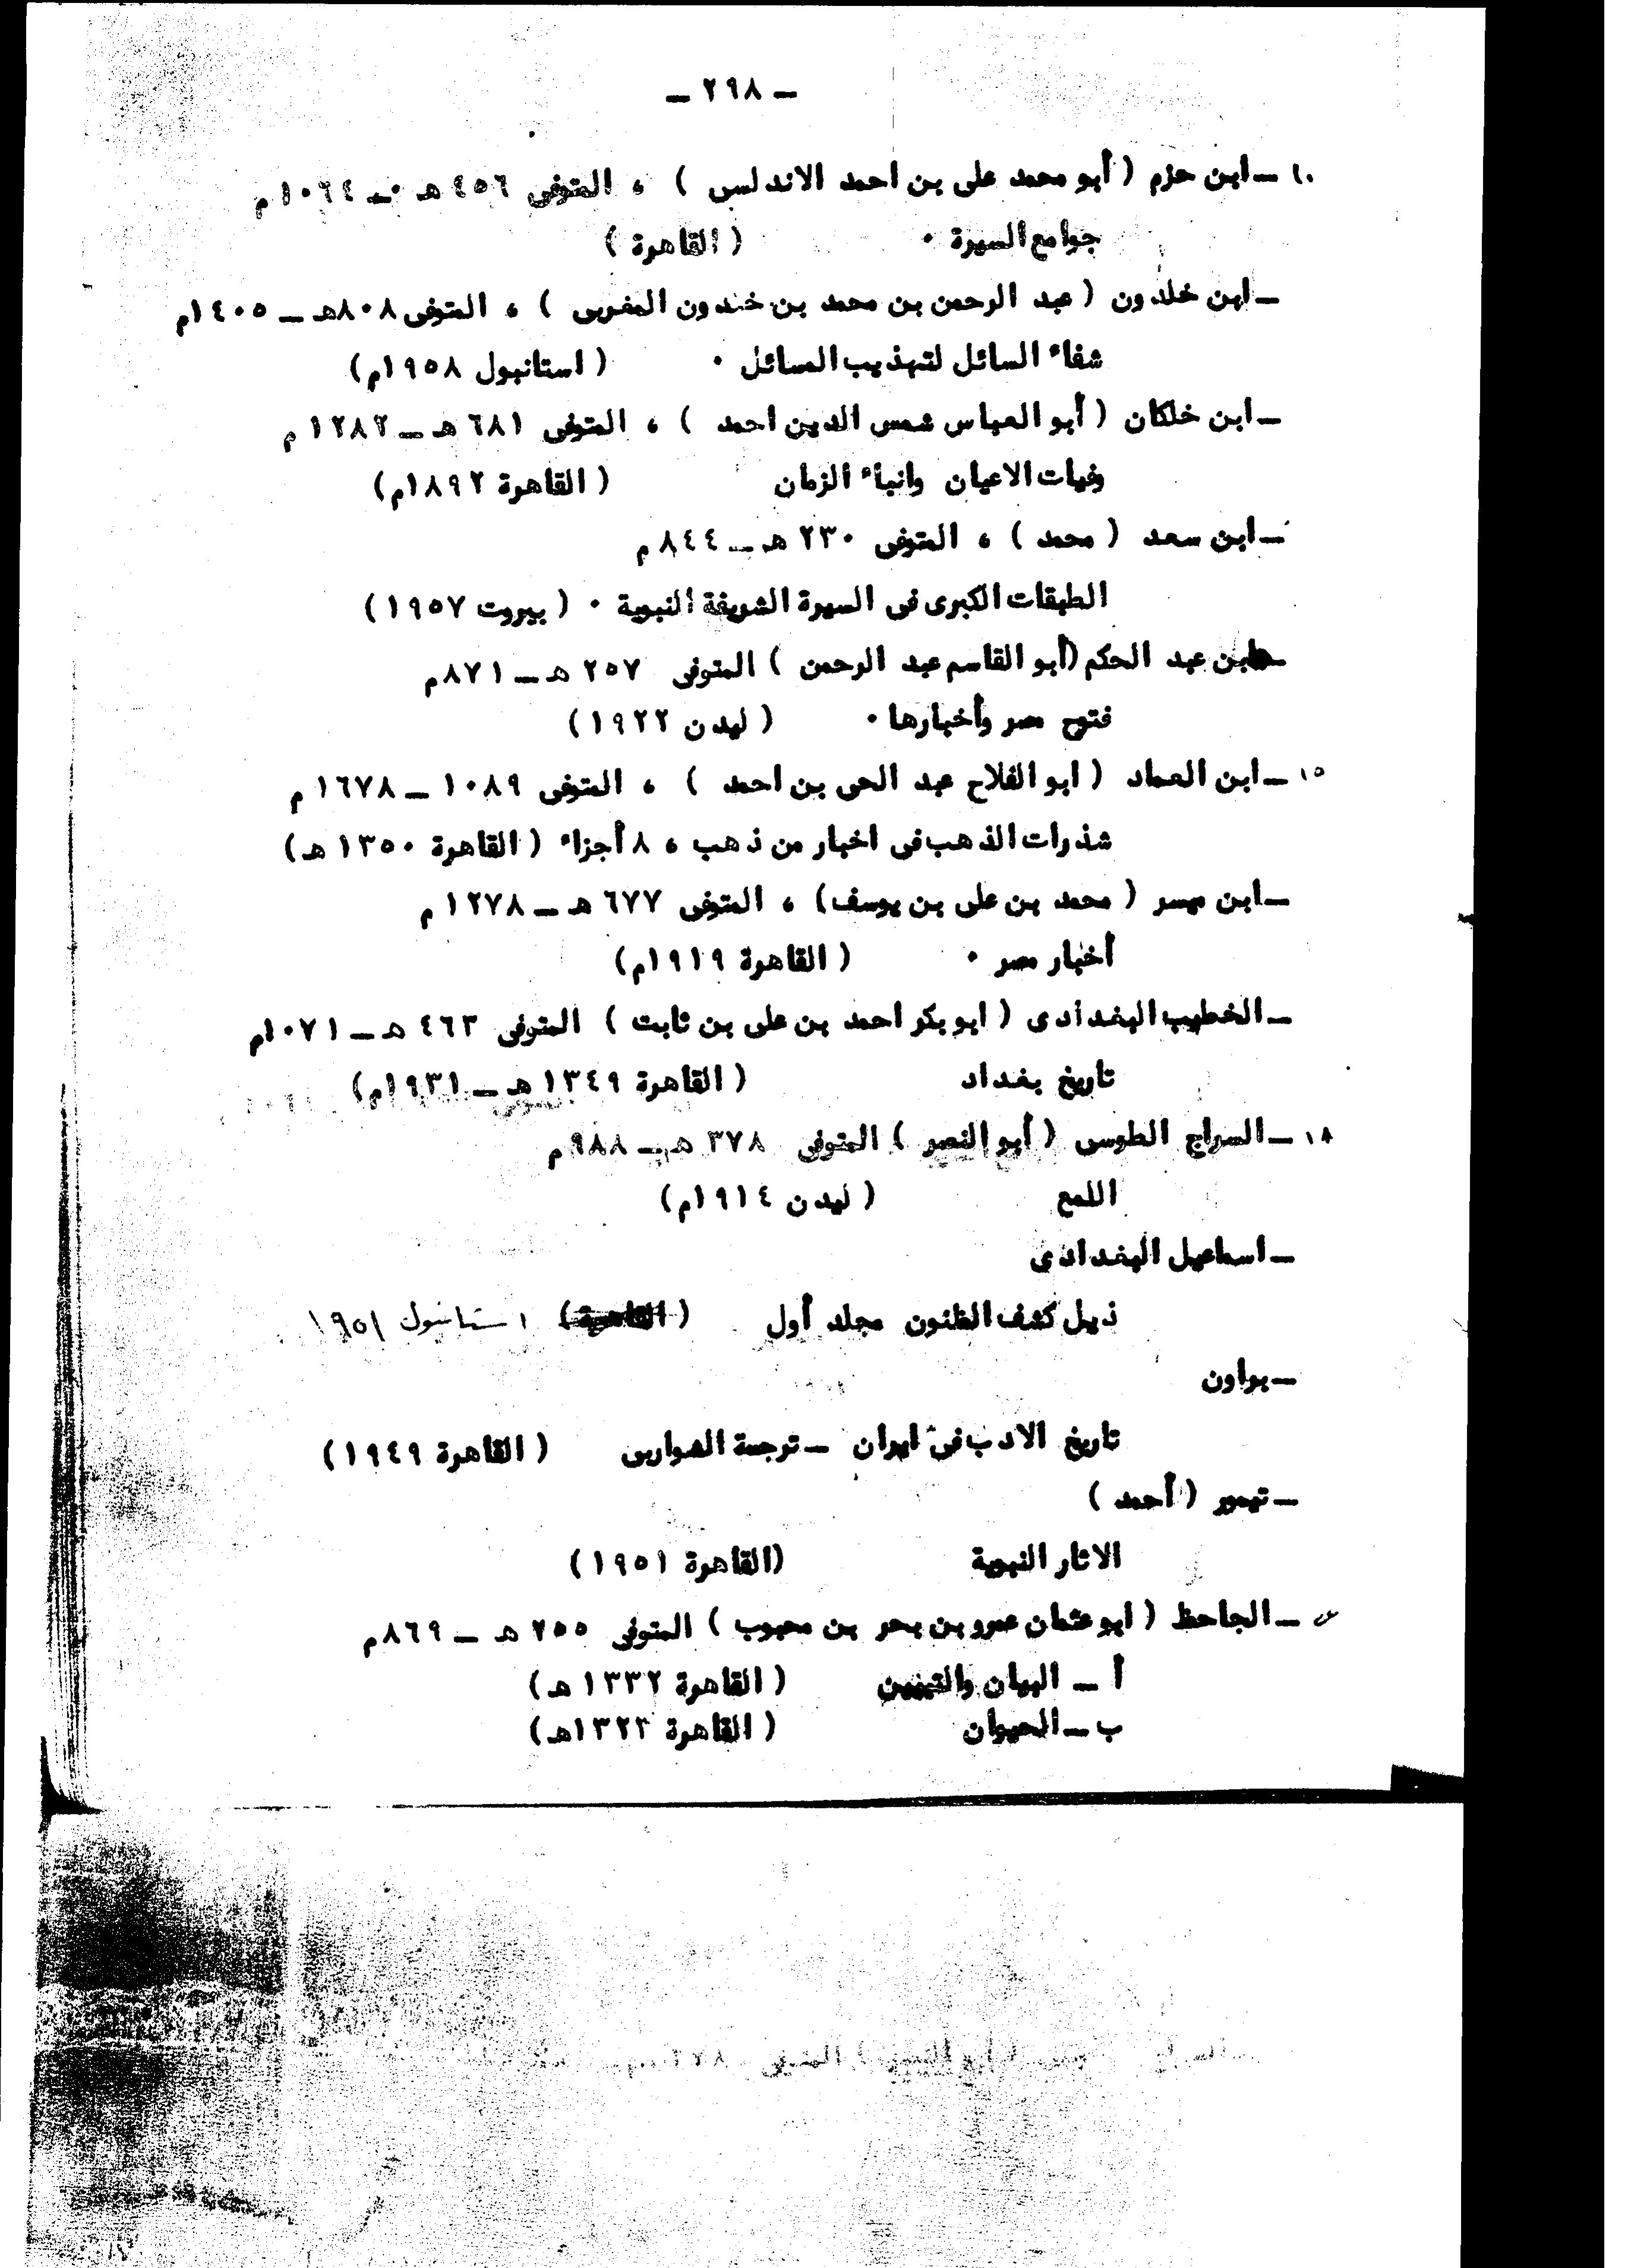 ـ ٢٩٨ ـ
١٠ ـ ابن حزم ( أبو محمد على بن احمد الاندلسى ) ، المتوفى ٤٥٦ هـ ـ ١٠٦٤ م
جوامع السيرة ٠ ( القاهرة )
ـ ابن خلدون ( عبد الرحمن بن محمد بن خندون المغربى ) ، المتوفى ٨٠٨هـ ـ ١٤٠٥م
شفاء السائل لتهذيب المسائل ٠ ( استانبول ١٩٥٨م)
ـ ابن خلكان ( أبو العباس شمس الدين احمد ) ، المتوفى ٦٨١ هـ ـ ١٢٨٢ م
وفيات الاعيان وانباء الزمان ( القاهرة ١٨٩٢م)
ـ ابن سعد ( محمد ) ، المتوفى ٢٣٠ هـ ـ ٨٤٤ م
الطبقات الكبرى فى السيرة الشريفة النبوية ٠ ( بيروت ١٩٥٧)
ـ ابن عبد الحكم (أبو القاسم عبد الرحمن ) المتوفى ٢٥٧ هـ ـ ٨٧١م
فتوح مصر وأخبارها ٠ ( ليدن ١٩٢٢)
١٥ ـ ابن العماد ( ابو الفلاح عبد الحى بن احمد ) ، المتوفى ١٠٨٩ ـ ١٦٧٨ م
شذرات الذهب فى اخبار من ذهب ، ٨ أجزاء ( القاهرة ١٣٥٠ هـ)
ـ ابن ميسر ( محمد بن على بن يوسف) ، المتوفى ٦٧٧ هـ ـ ١٢٧٨ م
أخبار مصر ٠ ( القاهرة ١٩١٩م)
ـ الخطيب البغدادى ( ابو بكر احمد بن على بن ثابت ) المتوفى ٤٦٣ هـ ـ ١٠٧١م
تاريخ بغداد ( القاهرة ١٣٤٩ هـ ـ ١٩٣١م)
١٨ ـ السراج الطوسى ( أبو النصر ) المتوفى ٣٧٨ هـ ـ ٩٨٨م
اللمع ( ليدن ١٩١٤م)
ـ اسماعيل البغدادى
ذيل كشف الظنون مجلد أول ( القاهرة) استانبول ١٩٥١
ـ براون
تاريخ الادب فى ايران ـ ترجمة الشواربى ( القاهرة ١٩٤٩)
ـ تيمور ( أحمد )
الاثار النبوية (القاهرة ١٩٥١)
ـ الجاحظ ( ابو عثمان عمرو بن بحر بن محبوب ) المتوفى ٢٥٥ هـ ـ ٨٦٩م
أ ـ البيان والتبيين ( القاهرة ١٣٣٢ هـ)
ب ـ الحيوان ( القاهرة ١٣٢٣هـ)